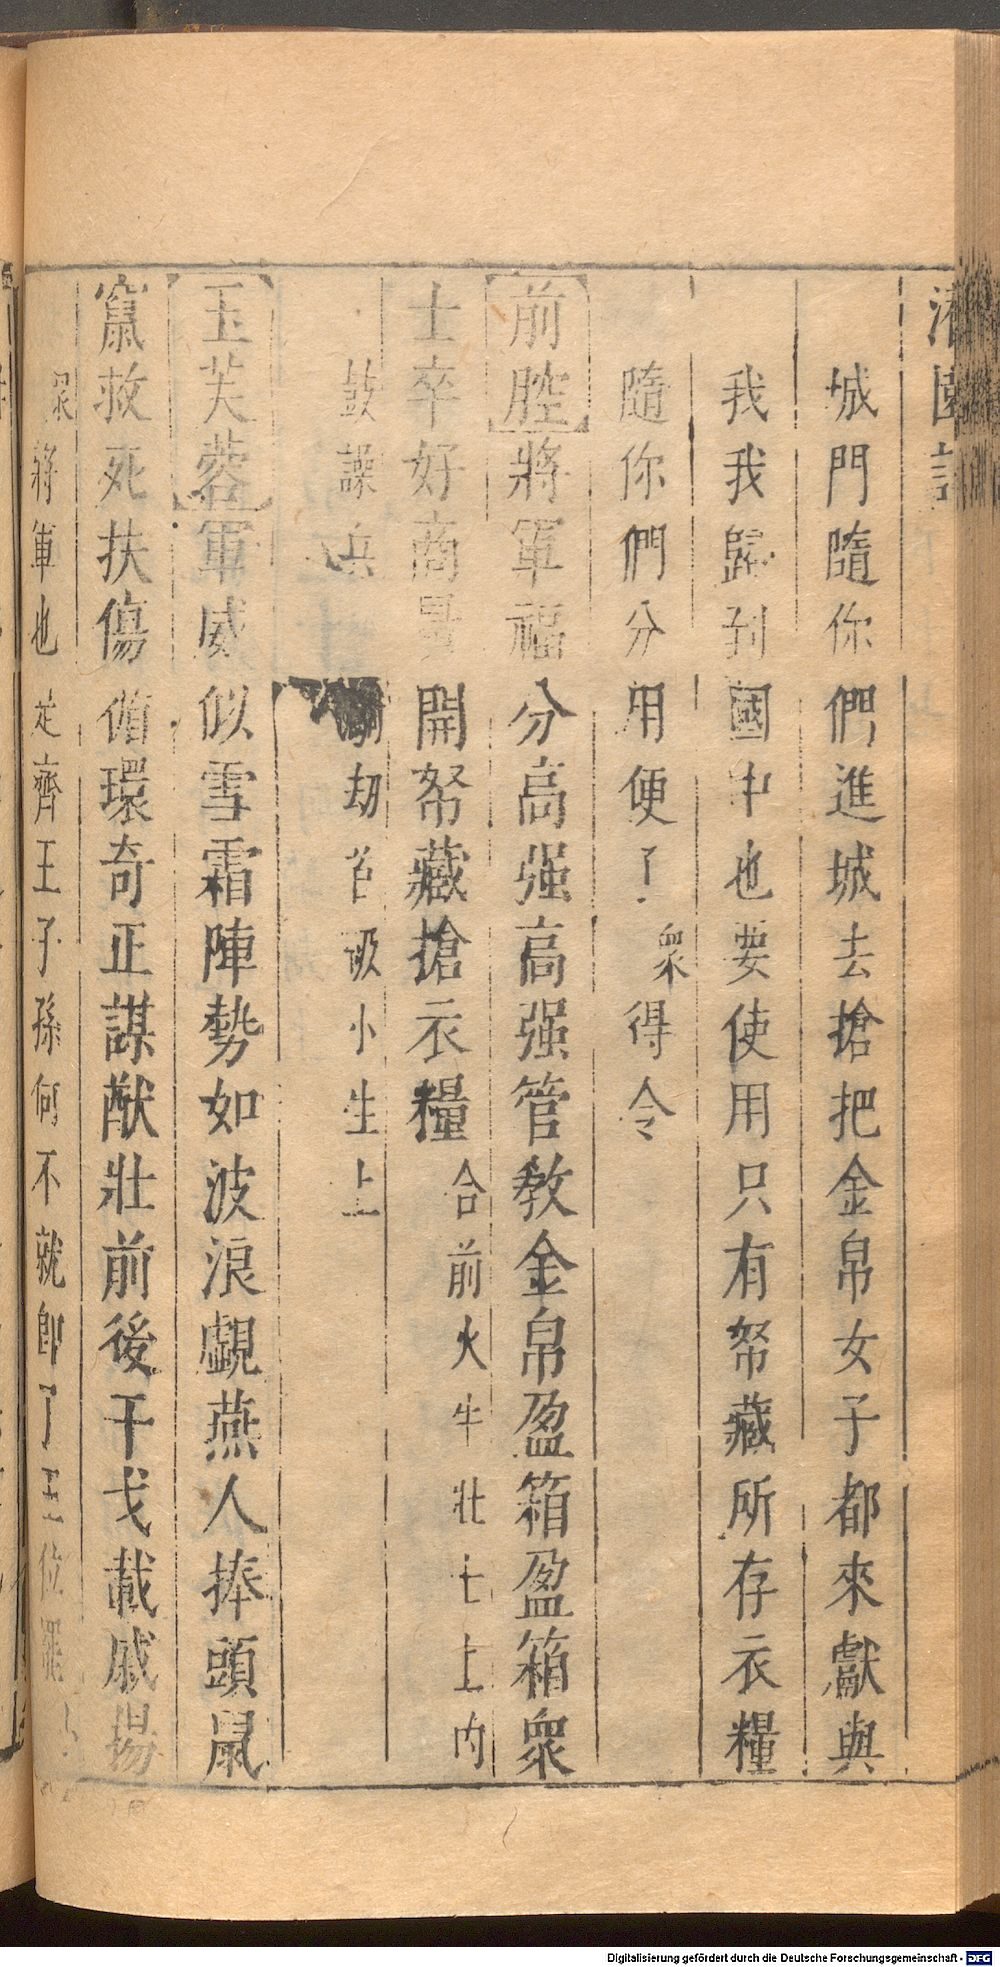 灌園記
城門隨你們進城去搶把金帛女子都來獻與
我我歸到國中也要使用只有帑藏所存衣糧
隨你們分用便了衆得令
前腔將軍福分高强高强管教金帛盈箱盈箱衆
士卒好商量開帑藏搶衣糧合前火牛壯士上內
鼓譟兵劫各諕小生上
玉芙蓉軍威似雪霜陣勢如波浪覷燕人捧頭鼠
竄救死扶傷循環奇正謀猷壯前後干戈載戚揚
衆將軍也是齊王子孫何不就即了王位罷
Digitalisierung gefördert durch die Deutsche Forschungsgemeinschaft - DFG